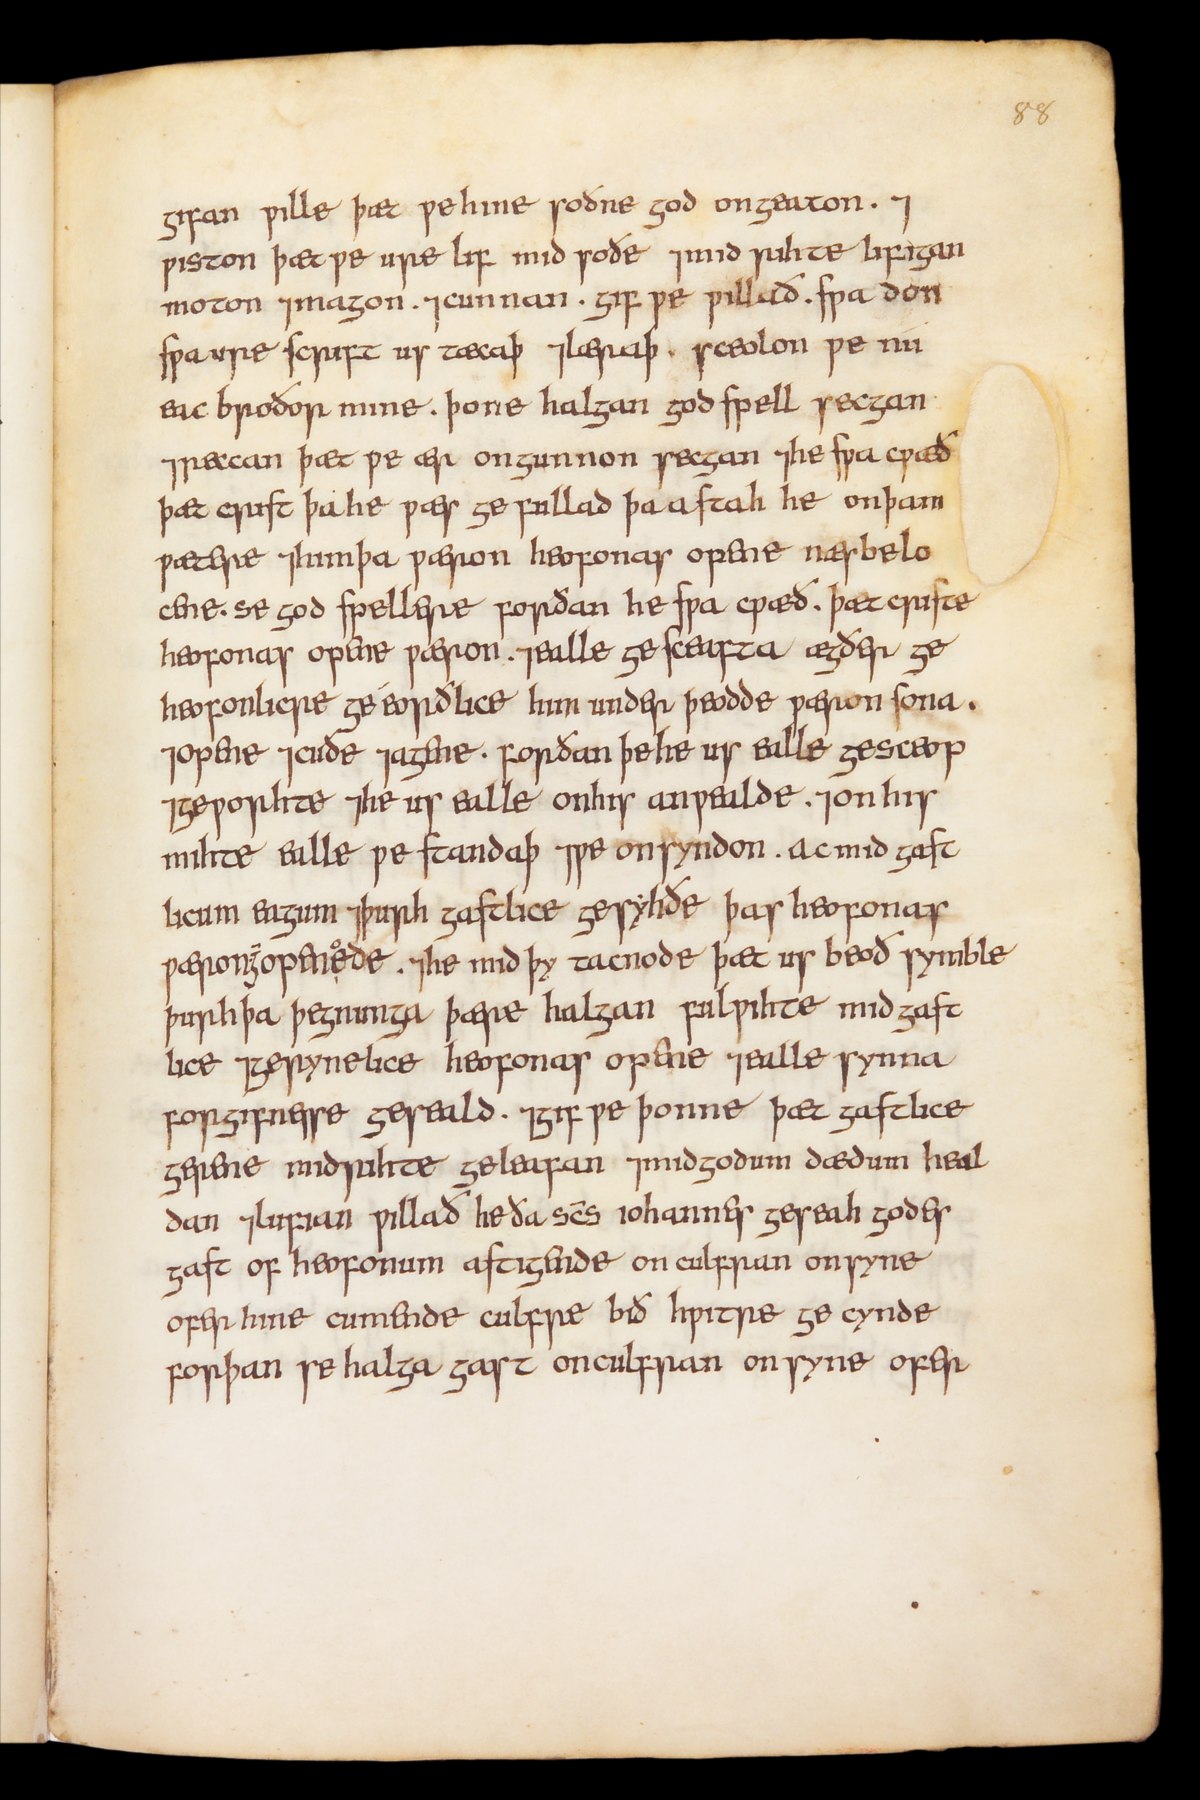 88
gifan ƿille þæt ƿe hine soðne god ongeaton · ⁊
ƿiston þæt ƿe ure lif mid soðe ⁊ mid rihte lifigan
moton ⁊ magon · ⁊ cunnan · gif ƿe ƿillað · sƿa don
sƿa ure scrift us tæcaþ ⁊ læraþ · sceolon ƿe nú
eac broðor mine · þone halgan god spell secgan
⁊ reccan þæt ƿe ær ongunnon secgan ⁊ he sƿa cƿæð
þæt crist þa he ƿæs ge fullad þa astah he on þam
ƿætere ⁊ him þa ƿæron heofonas opene næs belo
cene · se god spellere forðan he sƿa cƿæð · þæt criste
heofonas opene ƿæron · ⁊ ealle ge sceafta ægðer ge
heofonlicre ge eorðlice him under þeodde ƿæron sona ·
⁊ opene ⁊ cuðe ⁊ agene · forðan þe he us ealle gesceop
⁊ geƿorhte ⁊ he us ealle on his anƿealde · ⁊ on his
mihte ealle ƿe standaþ ⁊ ƿe on syndon · ac mid gast
licum eagum ⁊ þurh gastlice gesyhðe þas heofonas
ƿæron geopenode · ⁊ he mid þy tacnode þæt us beoð symble
þurh þa þegnunga þære halgan fulƿihte mid gast
lice ⁊ gesynelice heofonas opene ⁊ ealle synna
forgifnesse geseald · ⁊ gif ƿe þonne þæt gastlice
geryne mid rihte geleafan ⁊ mid godum dædum heal
dan ⁊ lufian ƿillað he ða scs̄ iohannes geseah godes
gast of heofonum astigende on culfran onsyne
ofer hine cumende culfre bið hƿitre ge cynde
forþan se halga gast on culfran on syne ofer